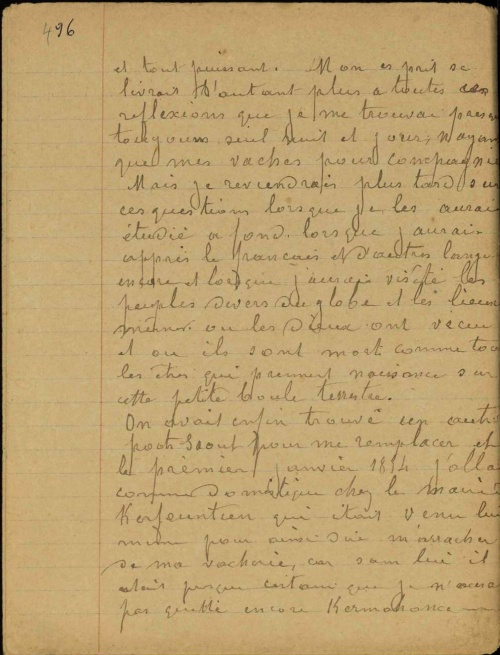 496
et tout puissant. Mon esprit se
livrait d'autant plus a toutes ces
reflexions que je me trouvai presq
toujours seul nuit et jour, n'ayan
que mes vaches pour compagnie
Mais je reviendrais plus tard sur
ces questions lorsque je les aurai
étudié a fond. lorsque j'aurais
appris le francais et d'autres langu
encore et lorsque j'aurais visité les
peuples divers du globe et les lieux
mêmes ou les Dieux ont vecu
et ou ils sont mort comme tou
les êtres qui prennent naissance sur
cette petite boule terrestre.
On avait enfin trouvé un autre
potr saout pour me remplacer et
le premier janvier 1854 j'alla
comme domestique chez le maire
Kerfeunteun qui était venu lui
même pour ainsi dire m'arracher
de ma vacherie, car sans lui il
etait presque certain que je n'aura
pas quitté encore Kermahonec